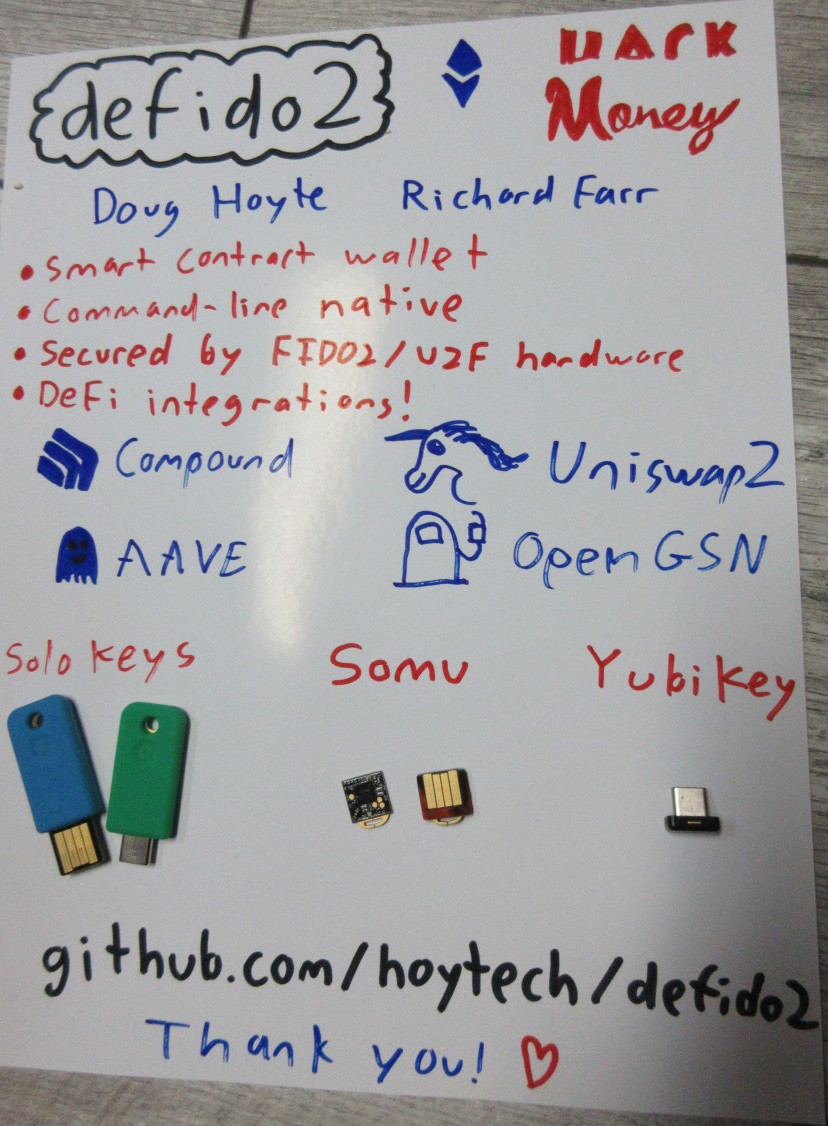 defido2
DARK
Money
Doug Hoyte Richard Farr
• Smart contract wallet
• Command-line native
• Secured by FIDO2/U2F hardware
• DeFi integrations!
Compound Uniswap2
AAVE OpenGSN
Solo keys Somu Yubikey
github.com/hoytech/defido2
Thank you!